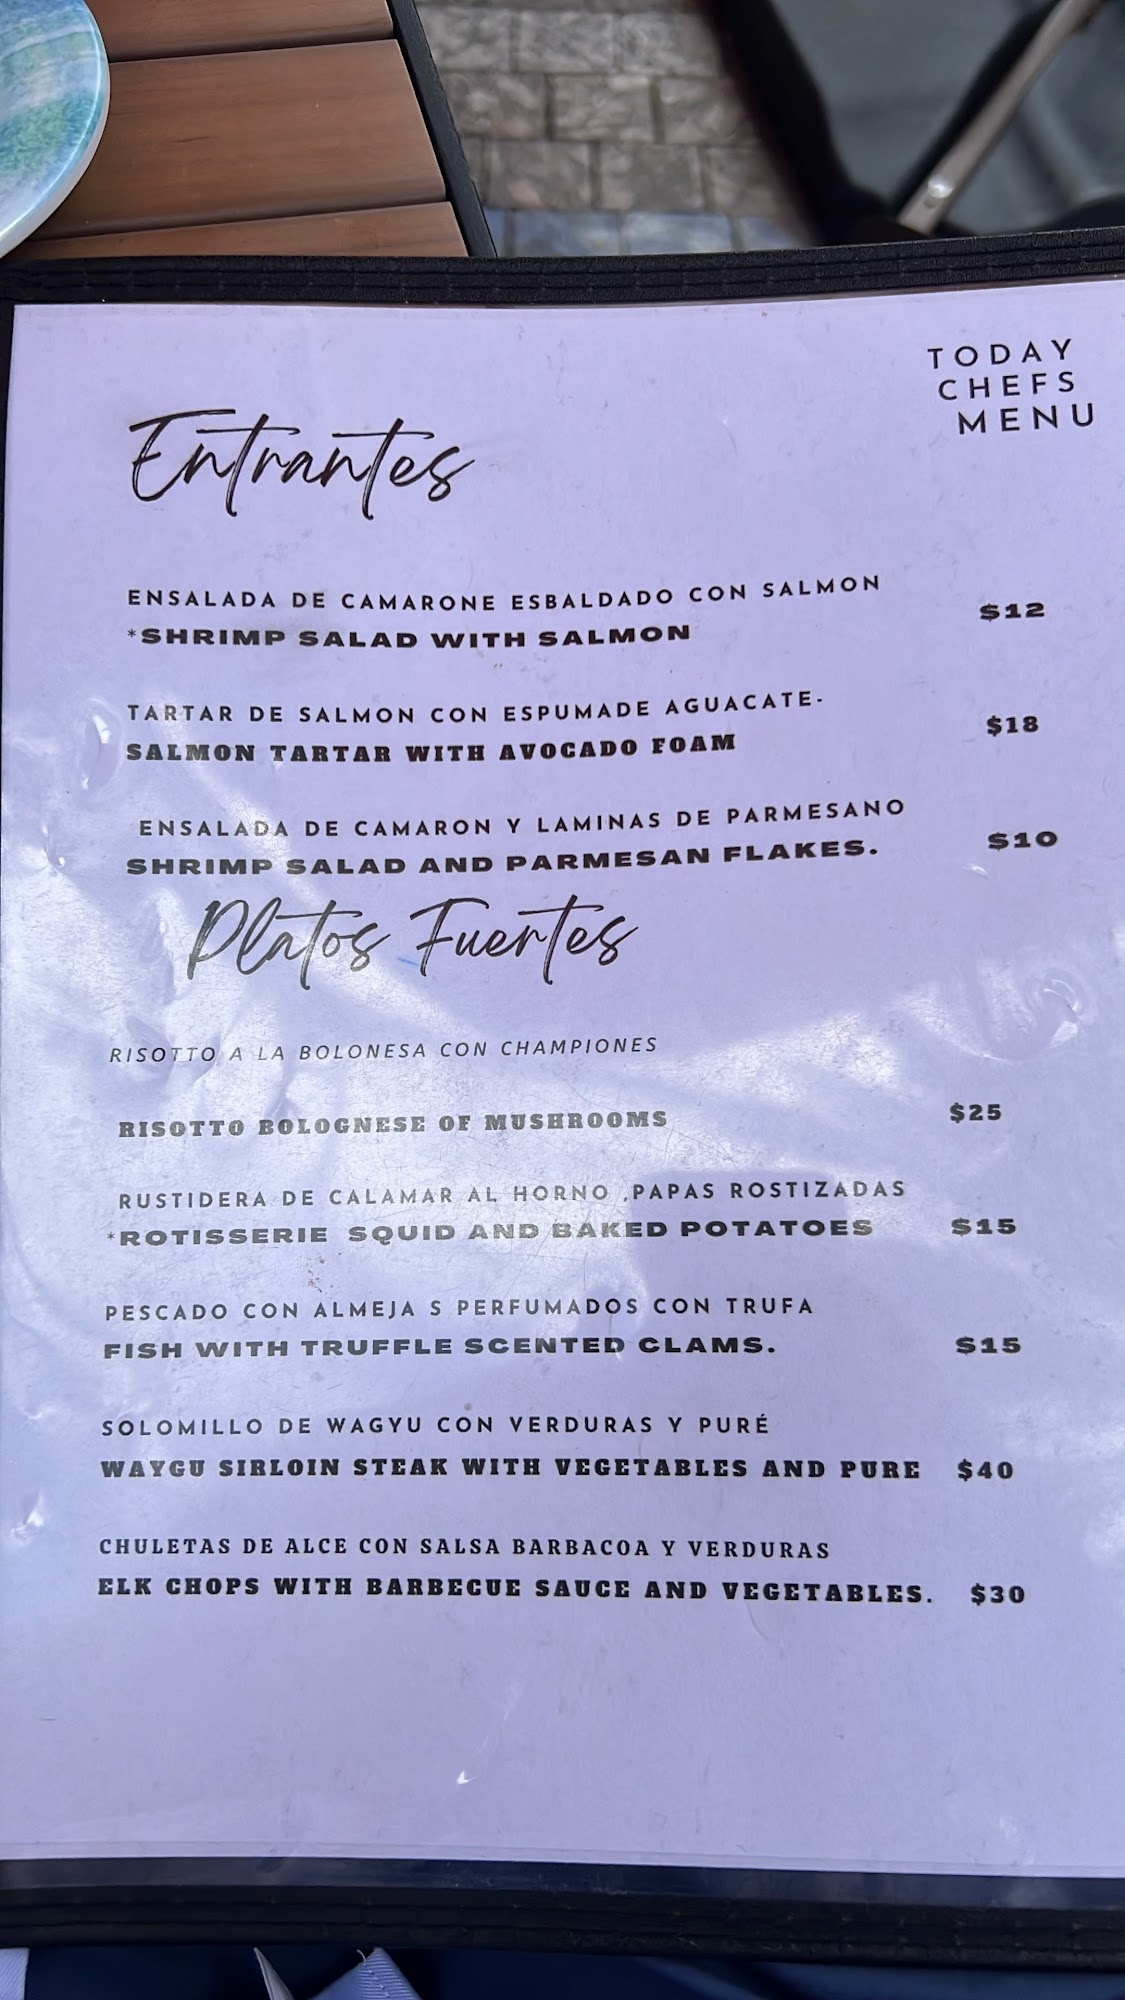 TODAY
CHEFS
MENU
Entrantes
ENSALADA DE CAMARONE ESBALDADO CON SALMON
*SHRIMP SALAD WITH SALMON $12
TARTAR DE SALMON CON ESPUMADE AGUACATE-
SALMON TARTAR WITH AVOCADO FOAM $18
ENSALADA DE CAMARON Y LAMINAS DE PARMESANO
SHRIMP SALAD AND PARMESAN FLAKES. $10
Platos Fuertes
RISOTTO A LA BOLONESA CON CHAMPIONES
RISOTTO BOLOGNESE OF MUSHROOMS $25
RUSTIDERA DE CALAMAR AL HORNO ,PAPAS ROSTIZADAS
*ROTISSERIE SQUID AND BAKED POTATOES $15
PESCADO CON ALMEJA S PERFUMADOS CON TRUFA
FISH WITH TRUFFLE SCENTED CLAMS. $15
SOLOMILLO DE WAGYU CON VERDURAS Y PURÉ
WAYGU SIRLOIN STEAK WITH VEGETABLES AND PURE $40
CHULETAS DE ALCE CON SALSA BARBACOA Y VERDURAS
ELK CHOPS WITH BARBECUE SAUCE AND VEGETABLES. $30